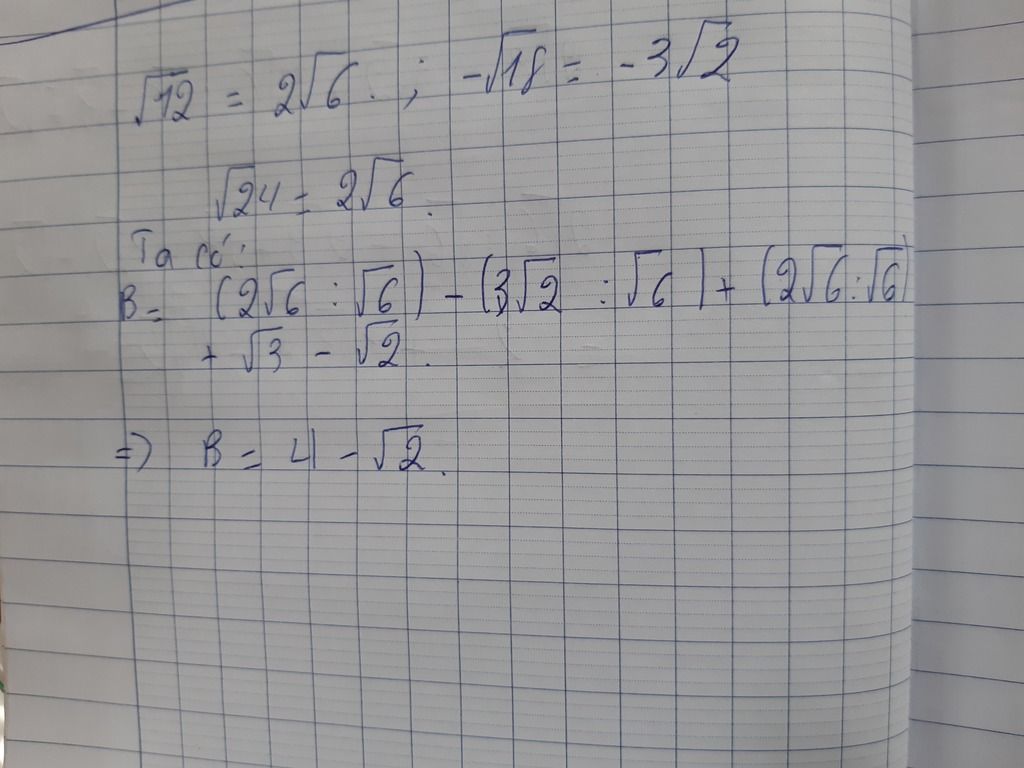 √12 = 2√6. ; -√18 = -3√2
√24 = 2√6.
Ta có:
B = (2√6 : √6) - (3√2 : √6) + (2√6 : √6)
+ √3 - √2.
=> B = 4 - √2.